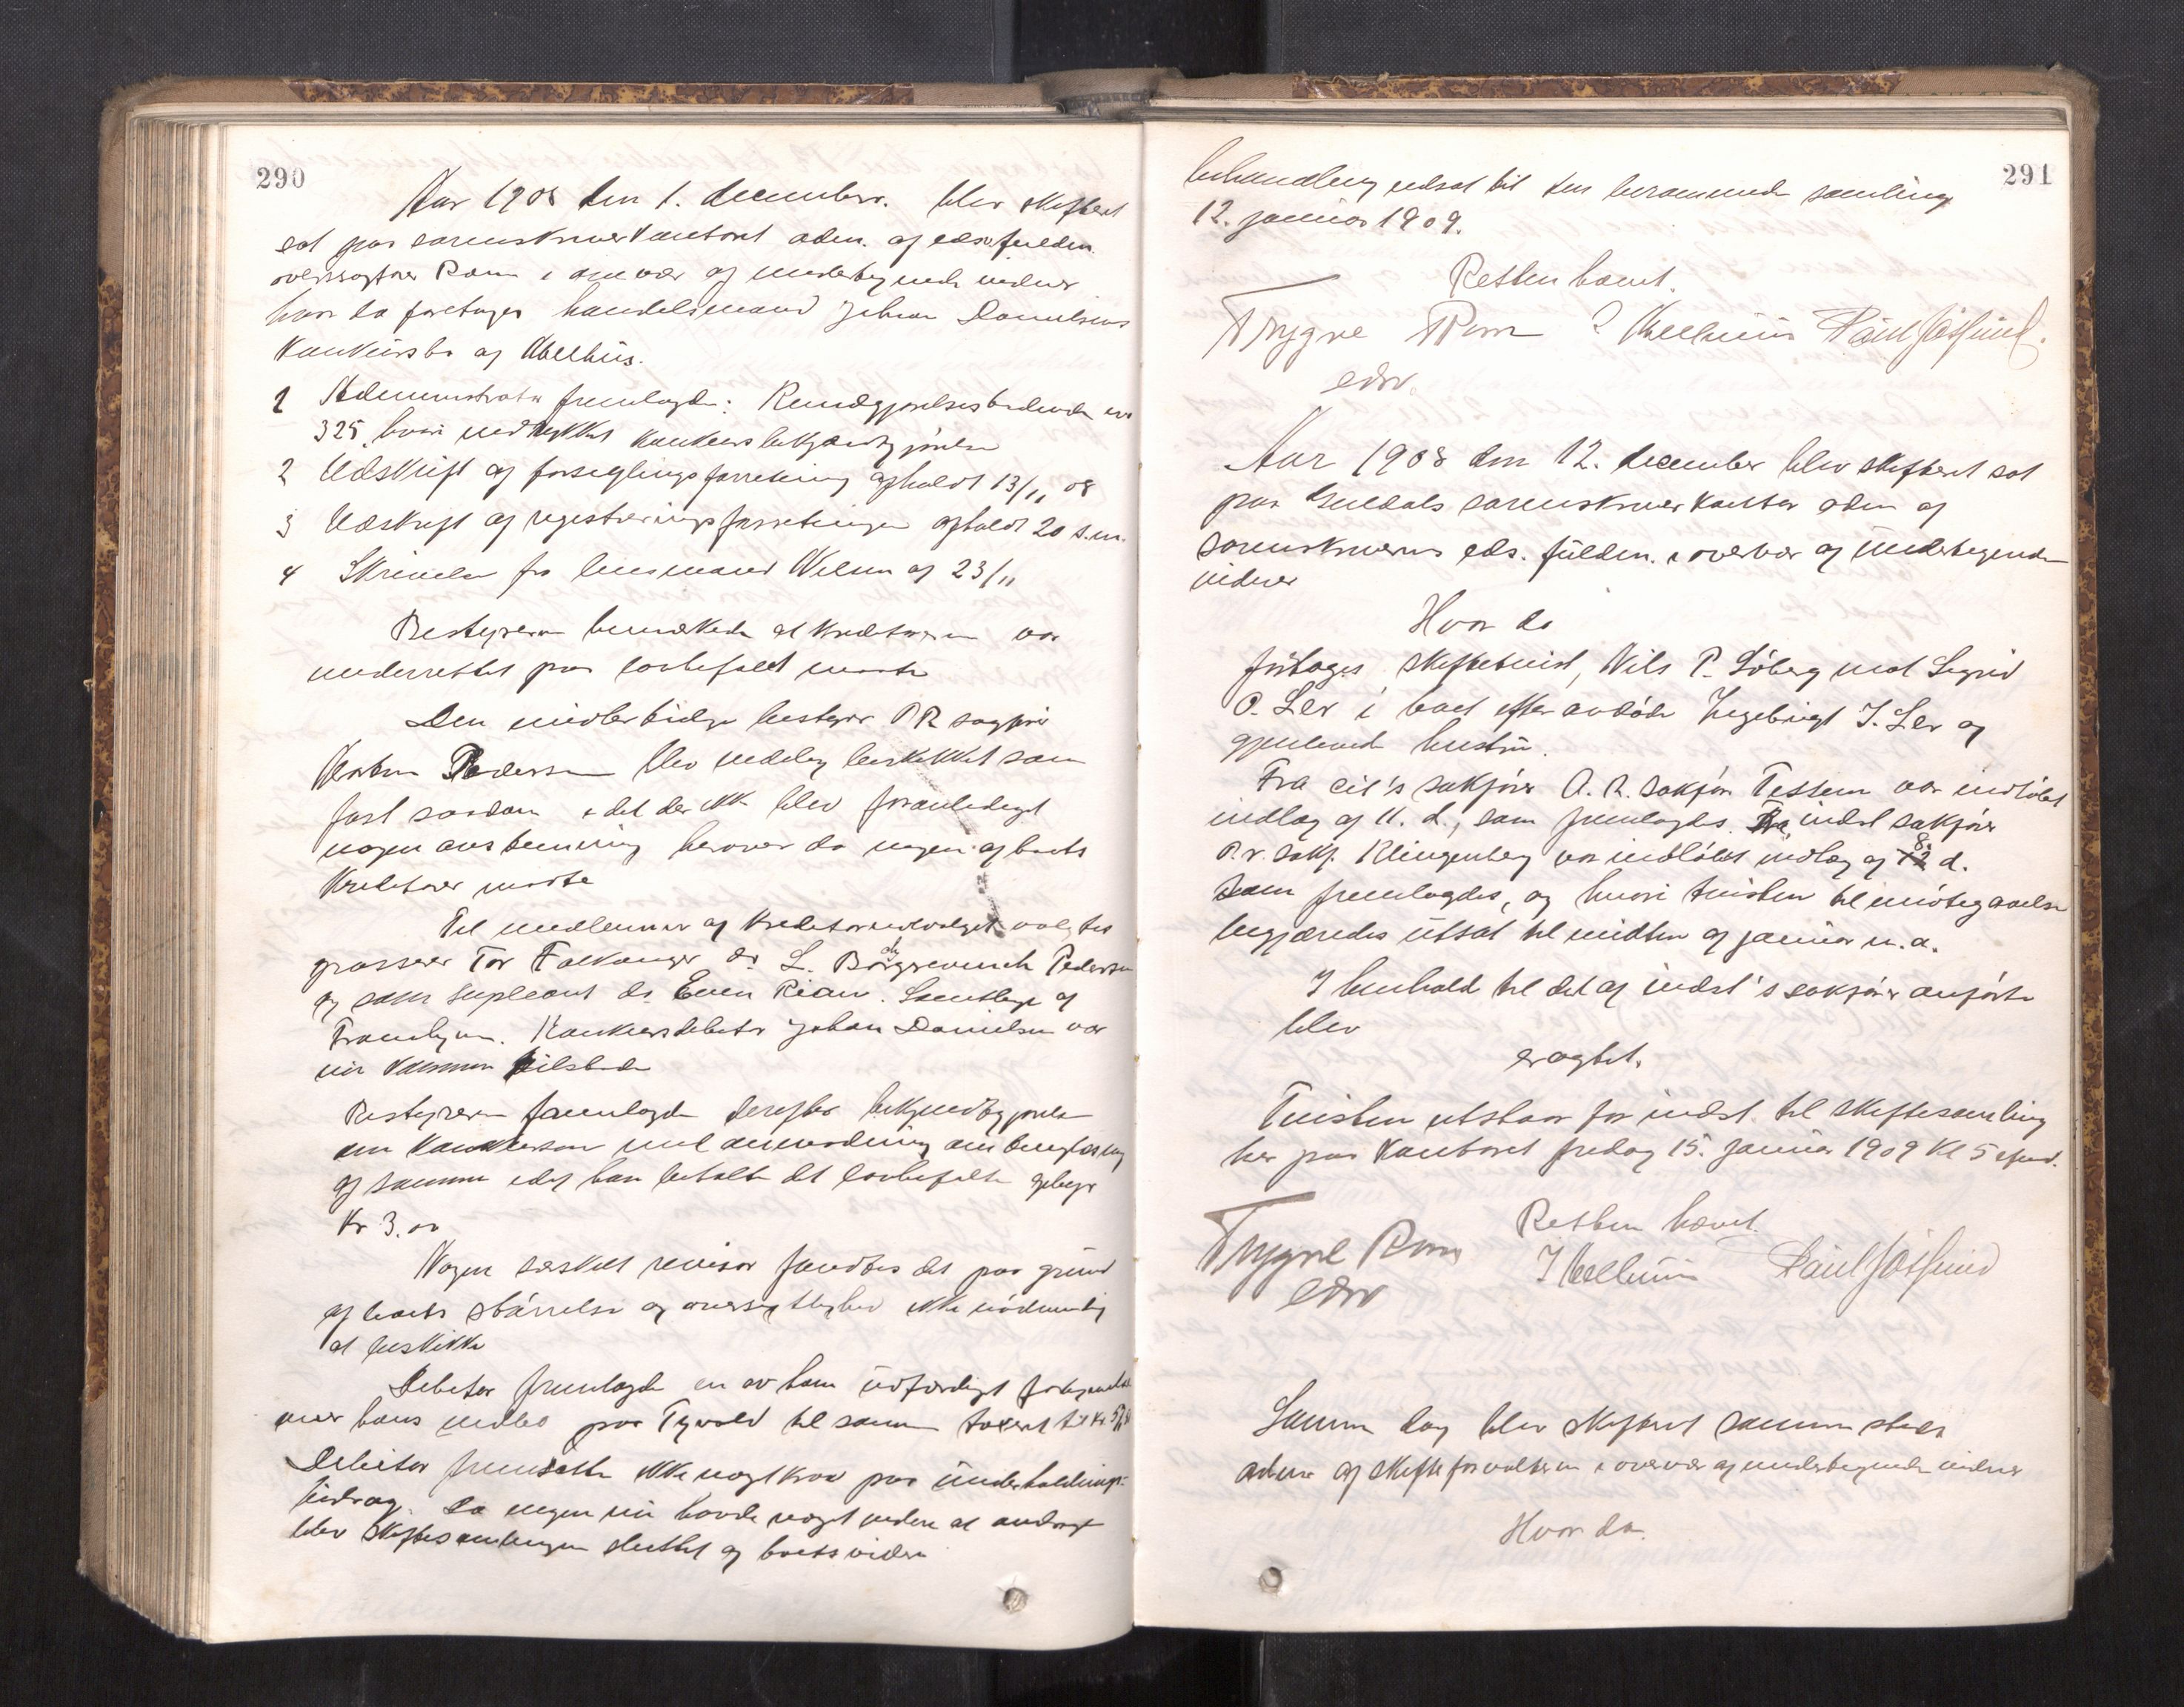 290
Aar 1908 den 1. december. blev skifteret
sat paa sorenskriverkontoret adm. af eds. fuldm.
overretssagfører Rom i overvær af undertegnede vidner
hvor da foretages handelsmand Johan Danielsens
Konkursbo af Kvelhus.
1 Administrator fremlagde: Kundgjørelsestidende nr
325. hvori indrykket konkursbekjendtgjørelse
2 Udskrift af forseglingsforretning afholdt 13/11 08
3 Udskrift af registreringsforretningen afholdt 20 s.m.
4 Skrivelse fra lensmand Wilson af 23/11
Bestyreren bemærkede at kreditorerne var
underrettet paa lovbefalet maate
Den midlertidige bestyrer OR sagfør
Pedersen blev endelig beskikket som
fast saadan idet der ikke blev foranlediget
nogen avstemning herover da ingen af boets
Kreditorer mødte
Til medlemmer af kreditorudvalget valgtes
grosserer Tor Falkanger do L. Borgrevinck Pedersen
og som supleant do Even Rian. Samtlige af
Trondhjem. Konkursdebitor Johan Danielsen var
nu kommen tilstede
Bestyreren fremlagde derefter bekjendtgjørelse
om konkursen med anmodning om tinglæsning
af samme idet han betalte det lovbefalte gebyr
Kr 3.00
Nogen særskilt revisor fandtes det paa grund
af boets størrelse og oversigtlighed ikke nødvendig
at beskikke
Debitor fremlagde en av ham udfærdiget fortegnelse
over hans indbo paa til sammen taxeret til Kr
Debitor fremsatte ikke noget krav paa underholdnings-
bidrag. Da ingen nu havde noget videre at andrage
blev skiftesamlingen sluttet og boets videre
291
behandling udsat til den berammede samling
12. januar 1909.
Retten hævet.
Trygve Rom J Kvelhus Paul Jøssund.
edsv.
Aar 1908 den 12. december blev skifteret sat
paa Guldals sorenskriverkontor adm af
sorenskriverens eds. fuldm. i overvær af undertegnede
vidner
Hvor da
foretoges skiftetvist, Nils P. Løberg mot Sigrid
O. Ler i boet efter avdøde Ingebrigt J. Ler og
gjenlevende hustru.
Fra cit's sakfører O. R. sakfør. Tessem var indløbet
indlæg af 11. d., som fremlagdes. Fra indst sakfører
O.r. sakf. Klingenberg var indløbet indlæg af 8 d.
som fremlagdes, og hvori tvisten til imøtegaaelse
begjæredes utsat til midten af januar n.a.
I henhold til det af indst's sakfører anførte
blev
eragtet.
Tvisten utstaar for indst. til skiftesamling
her paa Kontoret fredag 15. januar 1909 Kl 5 efmd.
Retten hævet.
Trygve Rom J Kvelhus Paul Jøssund
edsv
Samme dag blev skifteret samme steds
adm. af skifteforvalteren i overvær af undertegnede vidner
Hvor da.